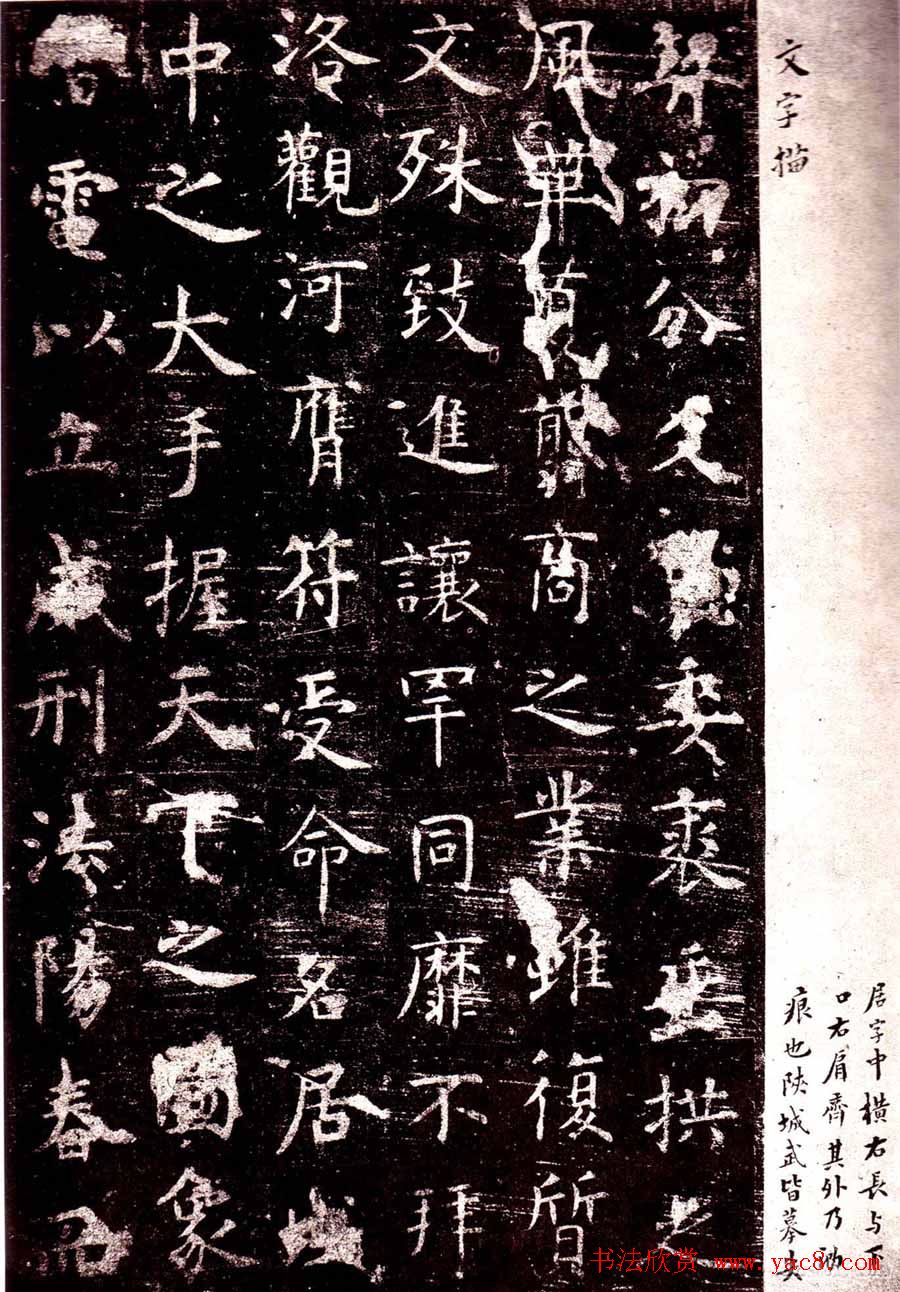 文字描
居字中橫右長与下
口右肩齊其外乃泐
痕也陝城武皆摹失
契初分爻象委裘垂拱之
風革夏翦商之業雖復質
文殊致進讓罕同靡不拜
洛觀河膺符受命名居域
中之大手握天下之圖象
雷電以立威刑法陽春而
书法欣赏 www.yac8.com